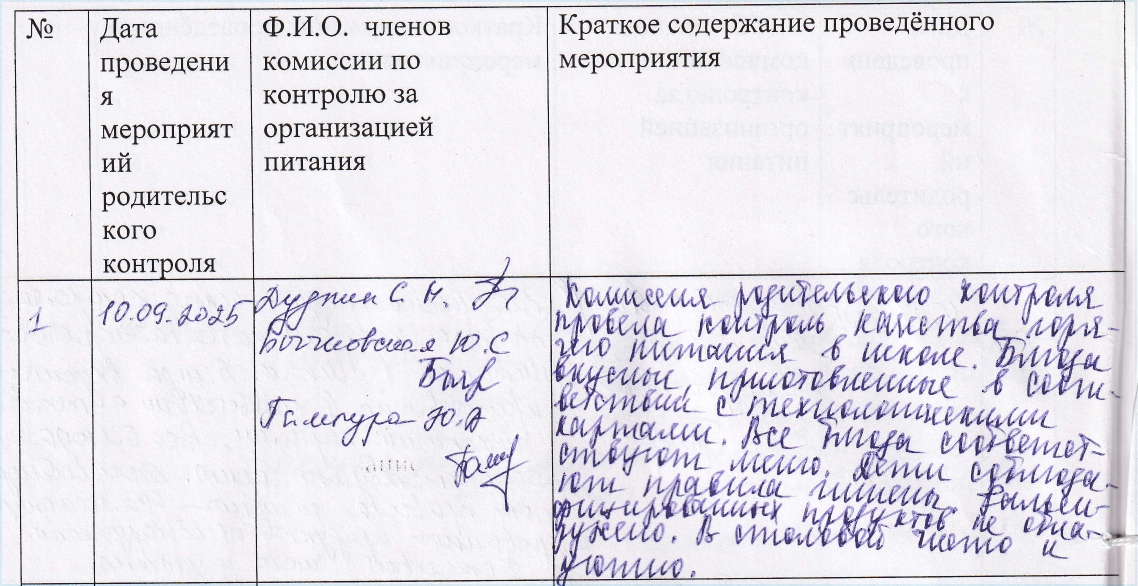 №
Дата
проведени
я
мероприят
ий
родительс
кого
контроля
Ф.И.О. членов
комиссии по
контролю за
организацией
питания
Краткое содержание проведённого
мероприятия
1
10.09.2025
С. Н.
Ю. С
Ю. А
Комиссия родительского контроля
провела контроль качества горя-
чего питания в школе. Блюда
вкусные, приготовленные в соот-
ветствии с технологическими
картами. Все блюда соответст-
ствуют меню. Дети соблюда-
ют правила гигиены. Фальси-
фицированных продуктов не обна-
ружено. В столовой чисто и
уютно.